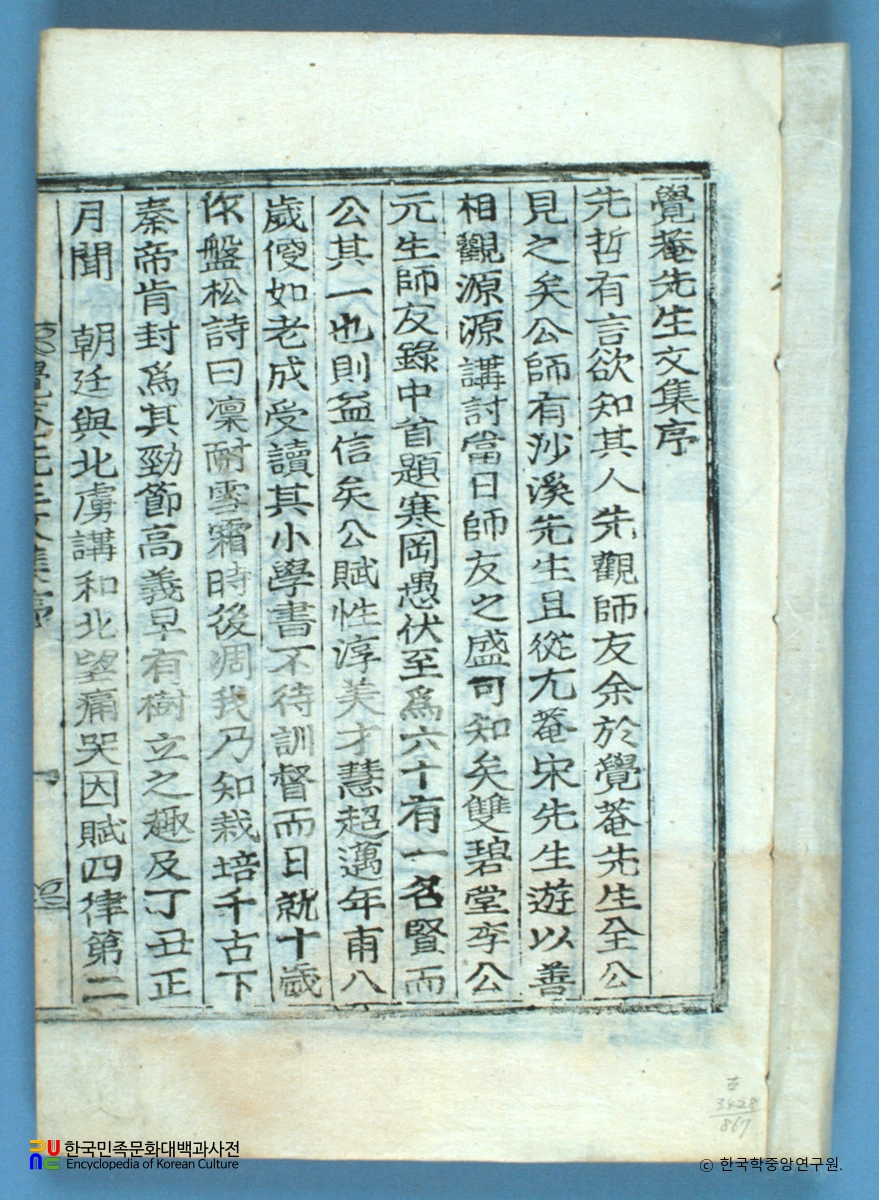 覺菴先生文集序
先哲有言欲知其人先觀師友余於覺菴先生全公
見之矣公師有沙溪先生且從尤菴宋先生遊以善
相觀源源講討當日師友之盛可知矣雙碧堂李公
元生師友錄中首題寒岡愚伏至爲六十有一名賢而
公其一也則益信矣公賦性淳美才慧超邁年甫八
歲儼如老成受讀其小學書不待訓督而日就十歲
作盤松詩曰凜耐雪霜時後凋我乃知栽培千古下
秦帝肯封爲其勁節高義早有樹立之趣及丁丑正
月聞 朝廷與北虜講和北望痛哭因賦四律第二
覺菴先生文集序
一
古
3428
867
한국민족문화대백과사전
Encyclopedia of Korean Culture
© 한국학중앙연구원.